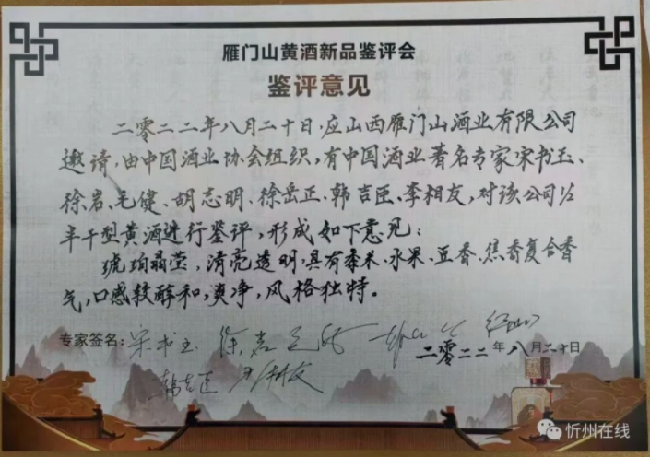 雁门山黄酒新品鉴评会
鉴评意见
二零二二年八月二十日,应山西雁门山酒业有限公司
邀请,由中国酒业协会组织,有中国酒业著名专家宋书玉、
徐岩、毛健、胡志明、徐岳正、韩吉臣、李相友,对该公司
半干型黄酒进行鉴评,形成如下意见:
琥珀晶莹,清亮透明,具有黍米、水果、豆香、焦香复合香
气,口感较醇和,爽净,风格独特。
专家签名:宋书玉 徐岩
二零二二年八月二十日
忻州在线